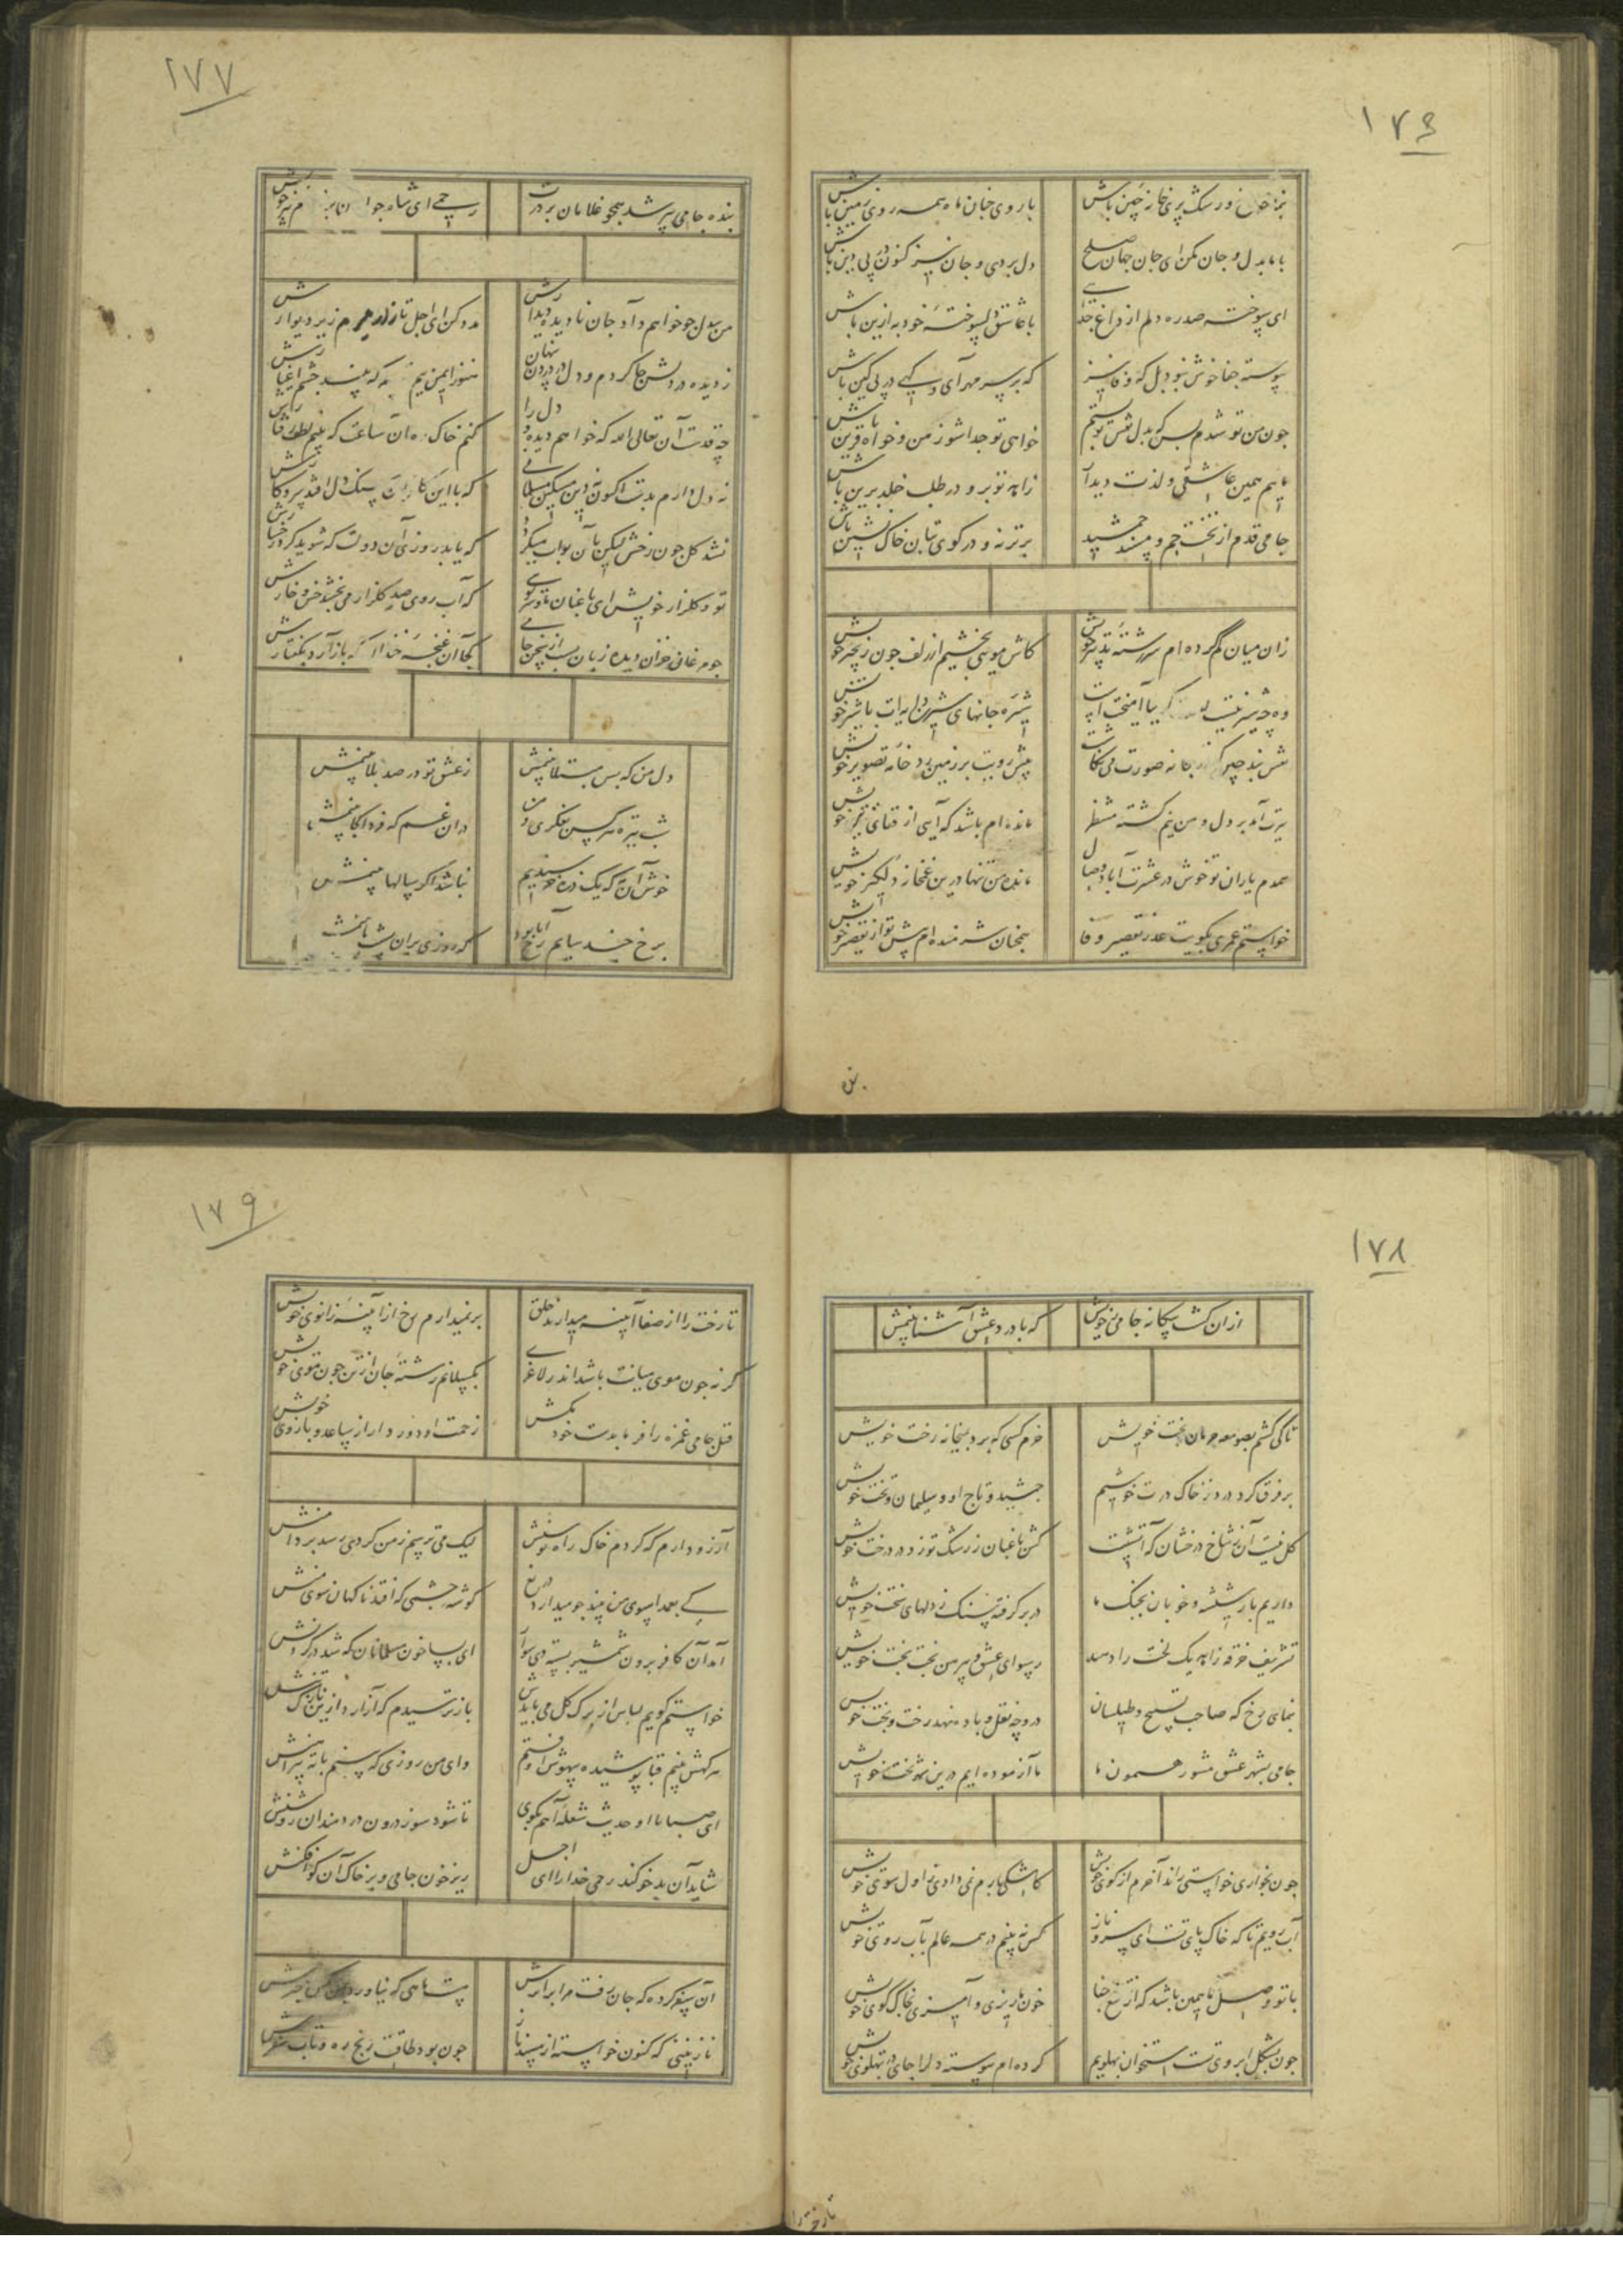 ۱۷۶
بنما رخ و رشک پری خانه چین باش
با روی چنان ماه همه روی زمین باش
با ما بدل و جان مکن ای جان جهان صلح
دل بردی و جان نیز کنون در پی دین باش
ای سوخته صد ره دلم از داغ جدایی
با عاشق دلسوخته خود به ازین باش
پیوسته جفا خوش نبود بل که وفا نیز
که بر سر مهر آی و گهی در پی کین باش
چون من تو شدم بس که بدل نقش تو بستم
خواهی تو جدا شو ز من و خواه قرین باش
ماییم همین عاشقی و لذت دیدار
زاهد تو برو در طلب خلد برین باش
جامی قدم از تخت جم و مسند جمشید
برتر نه و در کوی بتان خاک نشین باش
زان میان گم کرده ام سررشته تدبیر خویش
کاش مویی بخشیم از زلف چون زنجیر خویش
وه چه شیرینست لبت گویا آمیختست
شیره جانهای شیرین دایه ات با شیر خویش
نقش بند چین که در بتخانه صورت می نگاشت
پیش رویت بر زمین زد خانه تصویر خویش
تیرت آمد بر دل و من نیم کشته منتظر
مانده ام باشد که آیی از قفای تیر خویش
همدم یاران تو خوش در عشرت آباد وصال
مانده من تنها درین غمخانه دلگیر خویش
خواستم عمری بکویت عذر تقصیر وفا
همچنان شرمنده ام پیش تو از تقصیر خویش
بنده
۱۷۷
بنده جامی پیر شد همچو غلامان بر درت
رحمی ای شاه جوانان بر غلام پیر خویش
من بیدل چو خواهم داد جان نادیده دیدارش
مدد کن ای اجل تا زار میرم زیر دیوارش
ز دیده در دلش جا کردم و دل در درون پنهان
هنوز ایمن نیم که بیند چشم اغیارش
چه قدست آن تعالی الله که خواهم دیده و دل را
کنم خاک ره آن ساعت که بینم لطف رفتارش
نه دل دارم بدست اکنون نه دین مسکین مسلمانی
که با این کافران سنگ دل افتد سر و کارش
نشد گل چون رخش لیکن بآن بو آب میگردد
که یابد روزی آن دولت که شوید گرد رخسارش
تو و گلزار خویش ای باغبان ما و سر کویی
که آب روی صد گلزار می بخشد خس و خارش
چو مرغان خزان دیده زبان بست از سخن جامی
کجا آن غنچه خندان که باز آرد بگفتارش
دل من که بس مبتلا بینمش
ز عشق تو در صد بلا بینمش
شب تیره هر کس بفکری و من
در آن غم که فردا کجا بینمش
خوش آن که یک ذره خرسندیم
نباشد اگر سالها بینمش
برخ چند سایم رخ آیا بود
که روزی بر آن پشت پا بینمش
۱۷۸
از آن گشت بیگانه جامی ز خویش
که با درد عشق آشنا بینمش
تا کی کشم بصومعه حرمان بخت خویش
خرم کسی که برد بمیخانه رخت خویش
بر فرق گرد درد ز خاک درت خوشیم
جمشید و تاج او و سلیمان و تخت خویش
گل نیست آن بشاخ درخشان که آتشست
کش باغبان ز رشک تو زد در درخت خویش
داریم بار شیشه و خوبان بجنگ ما
در بر گرفته سنگ ز دلهای سخت خویش
تشریف خرقه زاهد یک لخت را دهید
رسوای عشق و پیرهن لخت لخت خویش
بنمای رخ که صاحب تسبیح و طیلسان
در وجه نقل و باده نهد رخت و پخت خویش
جامی بشهر عشق مشو رهنمون ما
ما آزموده ایم درین شهر بخت خویش
چون بخواری خواستی راند آخرم از کوی خویش
کاشکی بارم نمی دادی ز اول سوی خویش
آب رویم تا که خاک پای تست ای سرو ناز
کس نمی بینم در همه عالم بآب روی خویش
با تو وصل ما همین باشد که از تیغ جفا
خون ما ریزی و آمیزی بخاک کوی خویش
چون بشکل ابروی تست استخوان پهلویم
کرده ام پیوسته دل را جای در پهلوی خویش
تا رخت را
۱۷۹
تا رخت را از صفا آیینه میدارند خلق
بر نمیدارم رخ از آیینه زانوی خویش
گر نه چون موی میانت باشد اندر لاغری
بگسلانم رشته جان از تن چون موی خویش
قتل جامی غمزه را فرما بدست خود مکش
زحمت او دور دار از ساعد و بازوی خویش
آرزو دارم که گردم خاک راه توسنش
لیک می ترسم ز من گردی رسد بر دامنش
کی بعمدا سوی من بیند چو میدارد دریغ
گوشه چشمی که افتد ناگهان سوی منش
آمد آن کافر برون شمشیر بسته دی سوار
ای بسا خون مسلمانان که شد در گردنش
خواستم گویم لباس از برگ گل می بایدش
باز ترسیدم که آزارد ازین نازک تنش
هر کهش بینم قبا پوشیده بیهوش اوفتم
وای من روزی که بینم با ته پیراهنش
ای صبا با او حدیث شعله آهم بگوی
تا شود سوز درون دردمندان روشنش
شاید آن بدخو کند رحمی خدا را ای اجل
ریز خون جامی و بر خاک آن کو افکنش
آن سفر کرده که جان رفت مرا بر اثرش
هست ماهی که نیاورد کس خبرش
نازنینی که کنون خواسته از مسند ناز
چون بود طاقت رنج ره و تاب سفرش